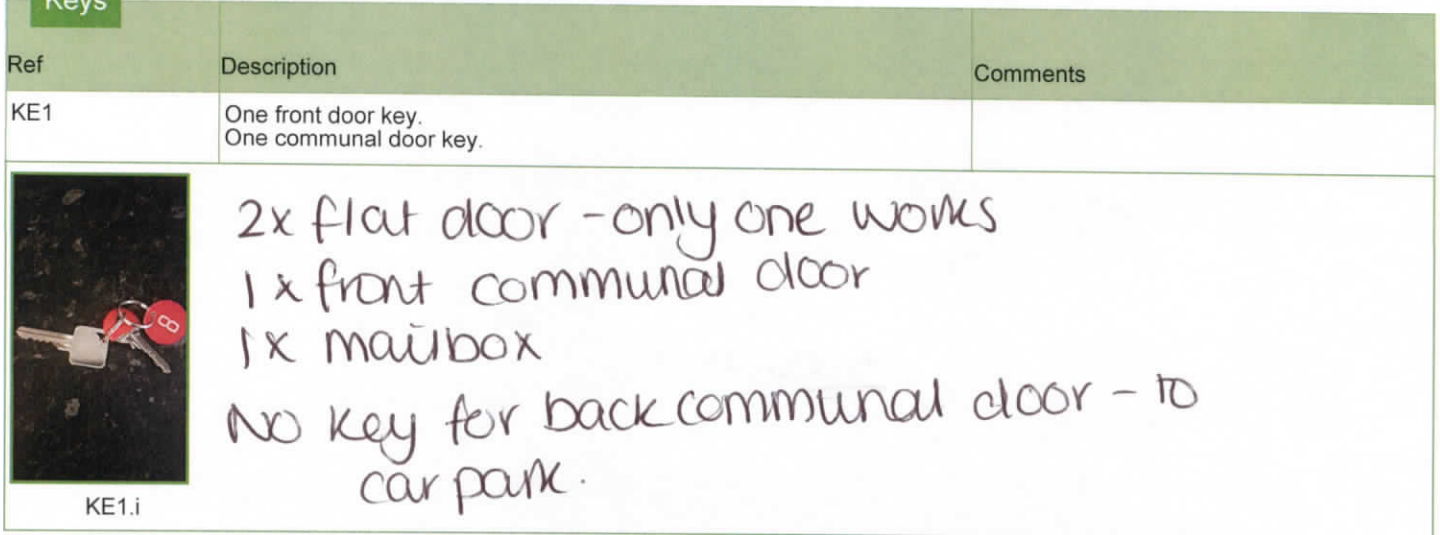 Keys
Ref Description Comments
KE1 One front door key.
One communal door key.
2x flat door - only one works
1x front communal door
1x mailbox
No key for back communal door - to
car park.
8
KE1.i